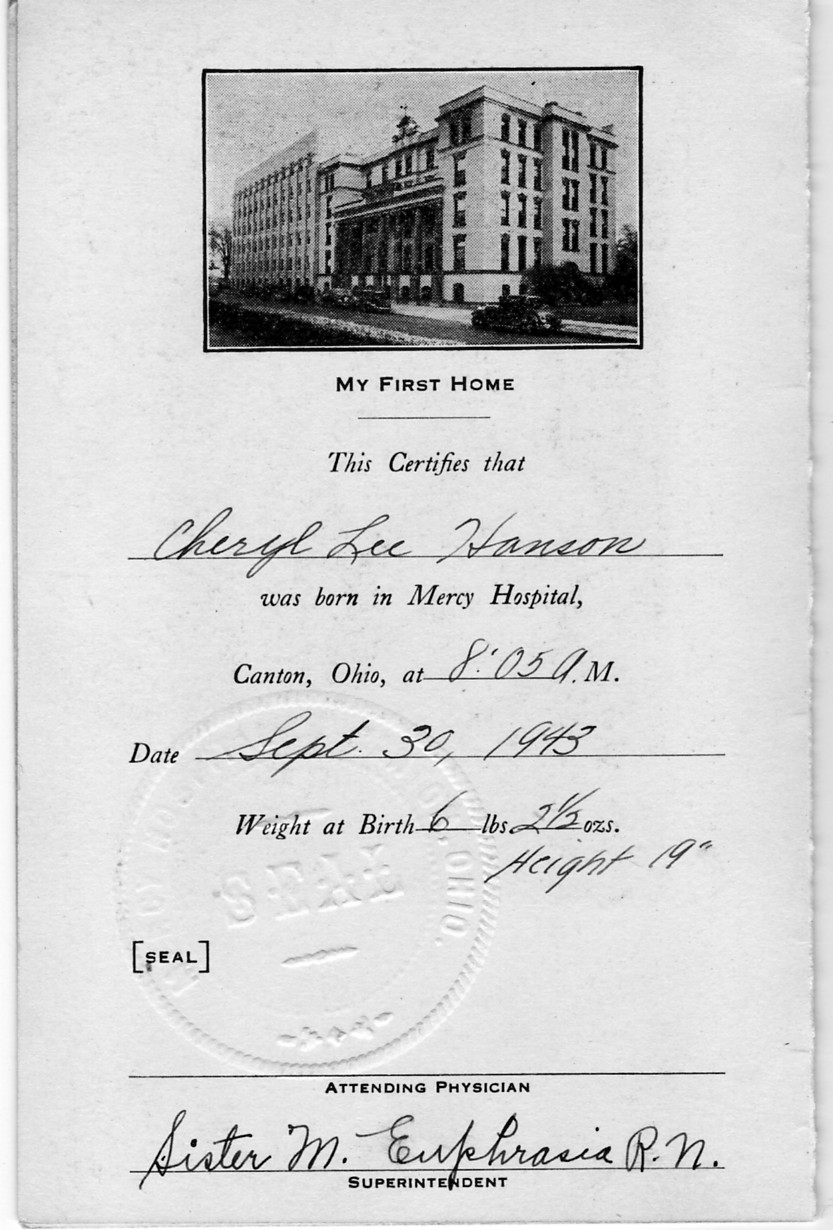 MY FIRST HOME
This Certifies that
Cheryl Lee Hanson
was born in Mercy Hospital,
Canton, Ohio, at 8:05 A. M.
Date Sept. 30, 1943
Weight at Birth 6 lbs 2 1/2 ozs.
Height 19"
SEAL
OHIO.
[SEAL]
ATTENDING PHYSICIAN
Sister M. Euphrasia R.N.
SUPERINTENDENT